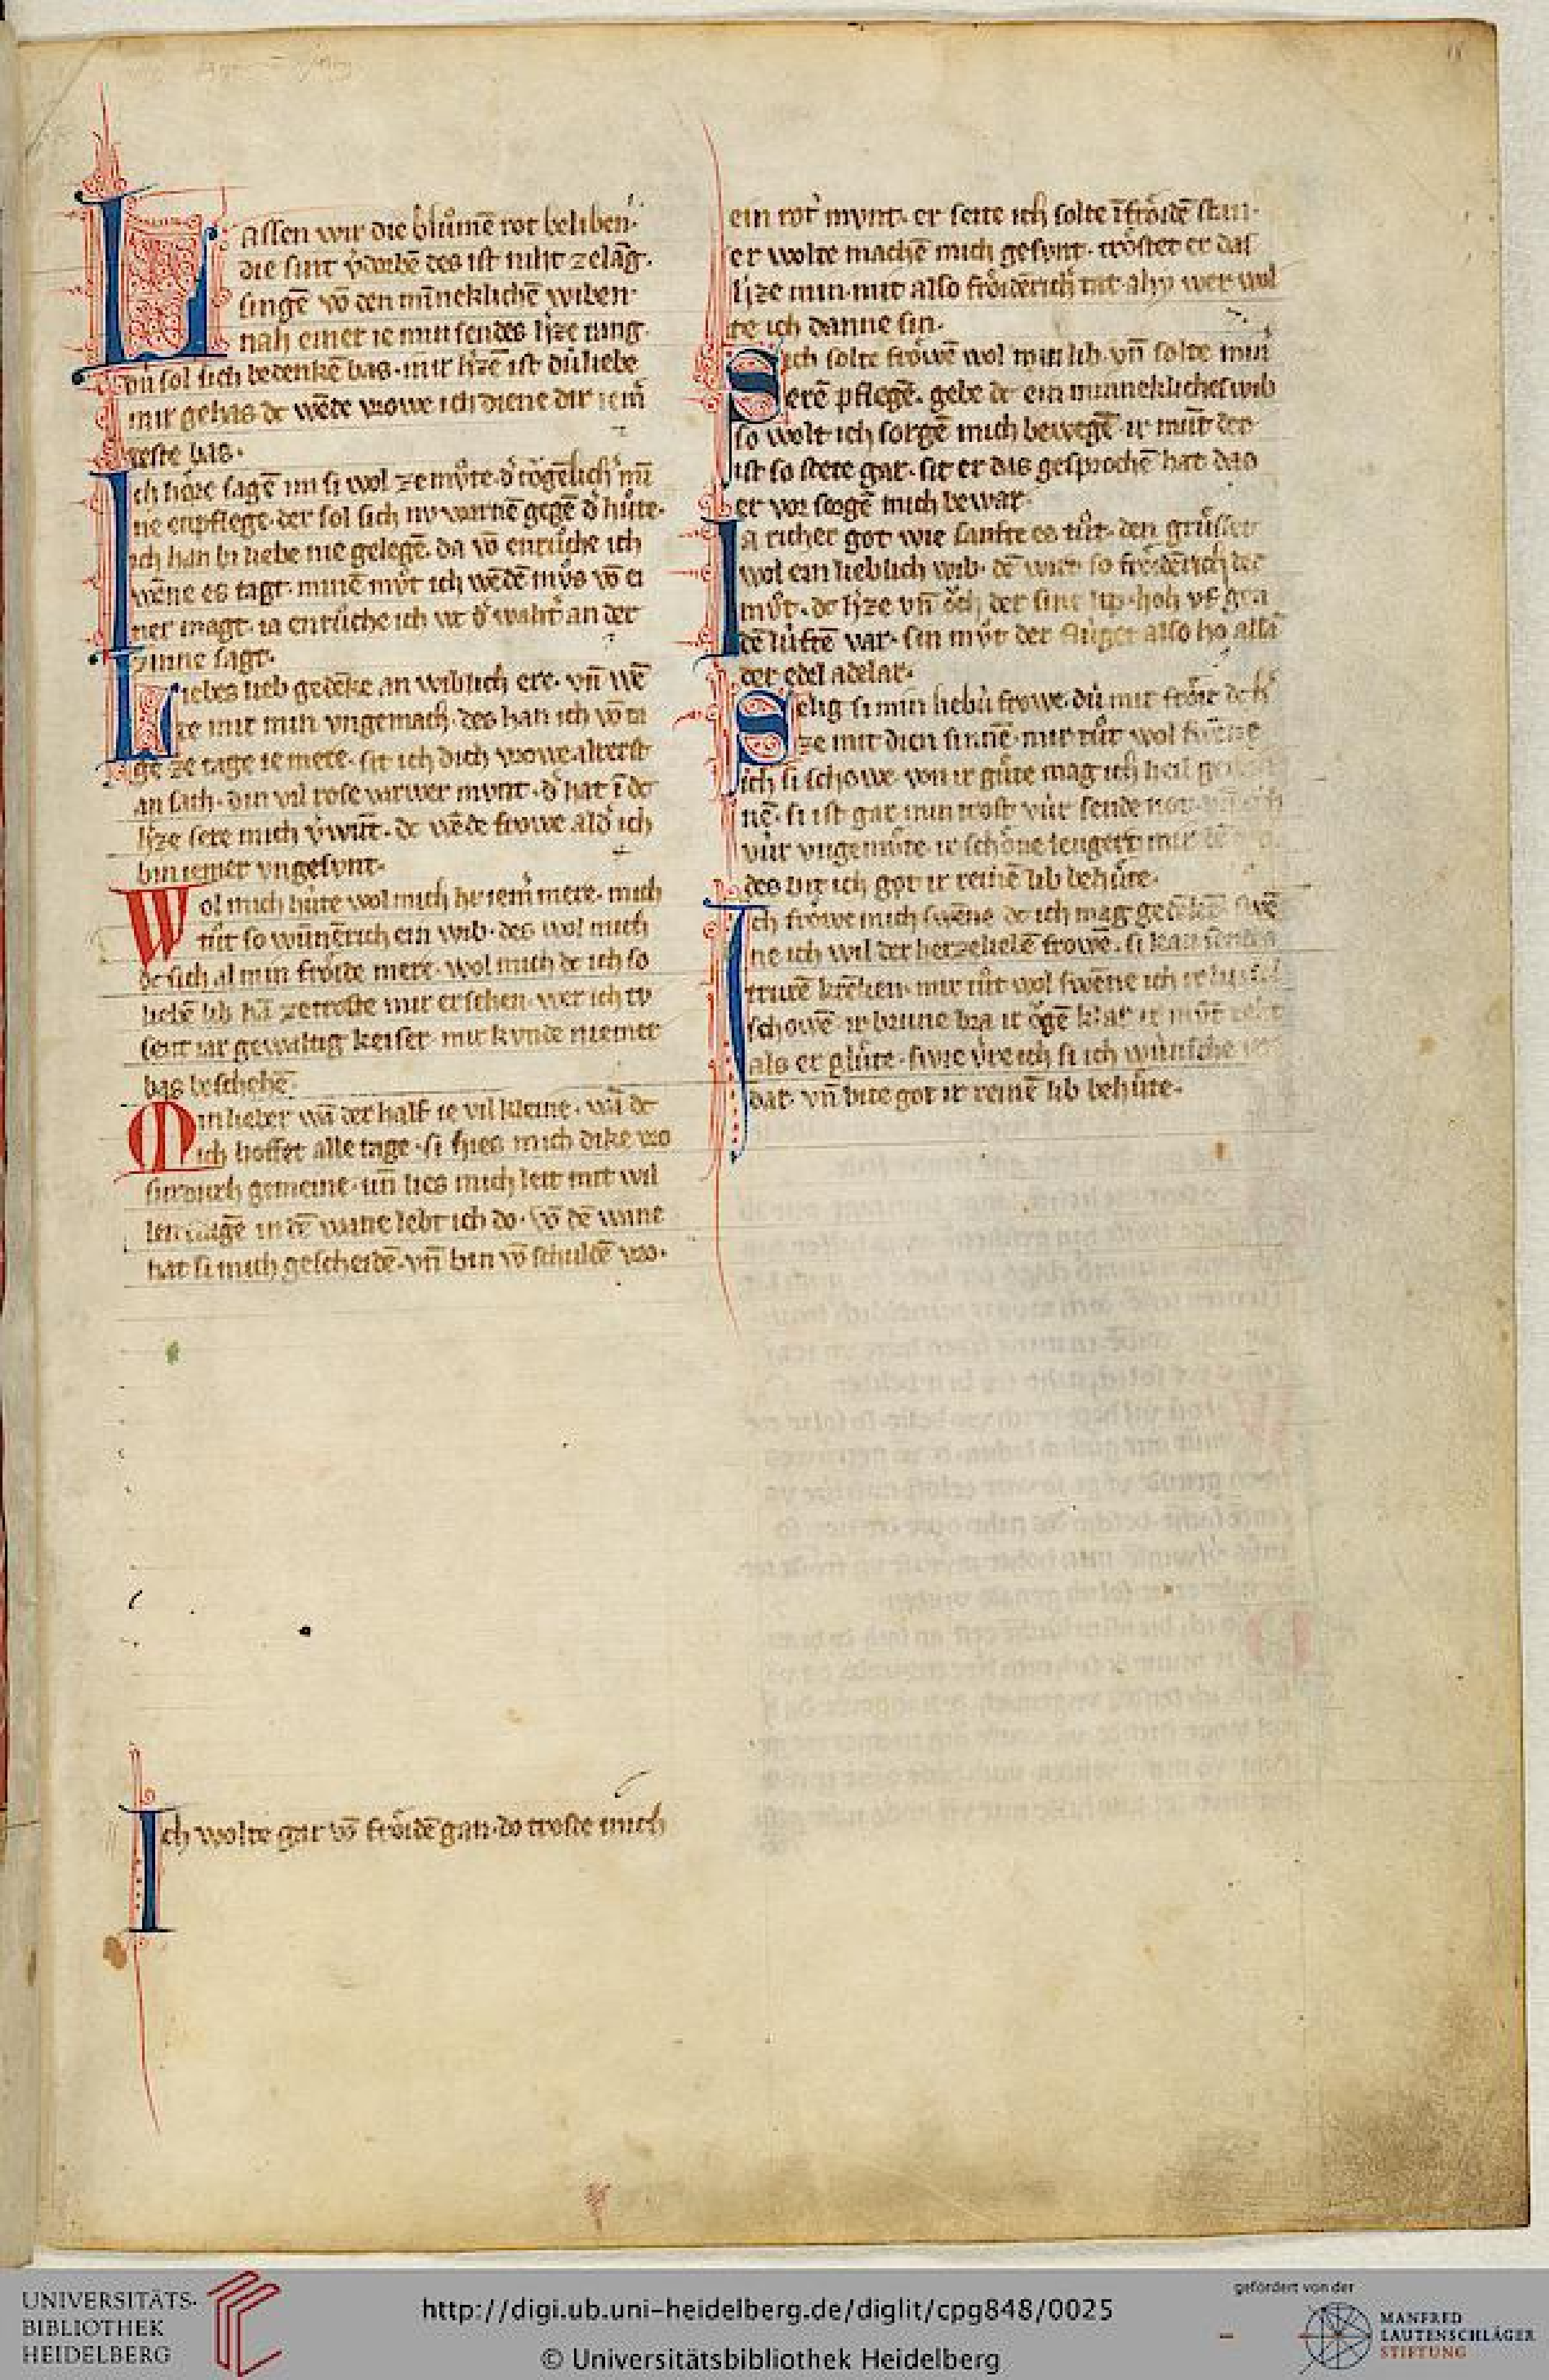 Lassen wir die blůmē rot beliben·
die sint v̓dorbē des ist niht zelāg·
singē vō den mīneklichē wiben·
nah einer ie min sendes h̓ze rang·
vn̄ sol sich bedenkē bas· mir h̓zē ist dú liebe
mir gehas dc wēde vrowe ich diene dir iem̄
veste bas·
Ich hőre sagē im si wol ze můte· d̓ tőgēlich̓ mī
ne enpflege· der sol sich nv warnē gegē d̓ hůte·
ich han bi liebe nie gelegē· da vō enrůche ich
wēne es tagt· minē můt ich wēdē můs vō ei
ner magt· ia enrůche ich
zinne sagt·
Liebes lieb gedēke an wiblich ere· vn̄ wē
de mir min vngemach· des han ich vō ta
ge ze tage ie mere· sit ich dich vrowe alrerst
an sach· din vil rose varwer mvnt· d̓ hat ī dc
h̓ze sere mich v̓wūt· dc wēde frowe ald̓ ich
bin iemer vngesvnt·
Wol mich hůte wol mich hv iem̄ mere· mich
tůt so wūnērich ein wib· des wol mich
dc sich al min frőide mere· wol mich dc ich so
liebē lib hā zetroste mir ersehen· wer ich tv
sent iar gewaltig keiser· mir kvnde niemer
bas beschehē·
Min lieber wā der half ie vil kleine· wā dc
ich hoffet alle tage· si hies mich dike vro
sin gemeine· vn̄ lies mich leit mit wil
len tragē in dē wane lebt ich do· vō dē wane
hat si mich gescheidē· vn̄ bin vō schuldē vro·
Ich wolte gar vō frőidē gan· do troste mich
ein rot̓ mvnt· er seite ich solte ī frőidē stan·
er wolte machē mich gesvnt· trőstet er das
h̓ze min· mit also frőidērich̓ tat· ahy wer wol
te ich danne sin·
Sich solte frőwē wol min lib· vn̄ solte min
erē pflegē· gebe dc ein minnekliches wib
so wolt ich sorgē mich bewegē· ir mūt der
ist so stete gar· sit er das gesprochē hat das
er vor sorgē mich bewar·
Ia richer got wie sanfte es tůt· den grůsset
wol ein lieblich wib· dē wirt so frőidērich der
můt· dc h̓ze vn̄ őch der sine lip· hoh vf gen
dē lúftē var· sin můt der flúget also ho alsā
der edel adelar·
Selig si min liebú frowe· dú mir frőit dc h̓
ze mit dien sinnē· mir tůt wol swēne
ich si schowe· von ir gůte mag ich heil gewin
nē· si ist gar min trost vúr sende not· vn̄ őch
vúr vngemůte· ir schőne lengert mir
des bit ich got ir reinē lib behůte·
Ich frőwe mich swēne dc ich mag gedēkē swē
ne ich wil der herzelielē frowē· si kan sendes
trurē krēken· mir tůt wol swēne ich
schowē· ir brune bra ir őgē klar ir mūt reht
als er glůte· swie v̓re ich si ich wúnsche ir
dar· vn̄ bite got ir reinē lib behůte·
UNIVERSITÄTS-
BIBLIOTHEK
HEIDELBERG
http://digi.ub.uni-heidelberg.de/diglit/cpg848/0025
© Universitätsbibliothek Heidelberg
gefördert von der
MANFRED
LAUTENSCHLÄGER
STIFTUNG